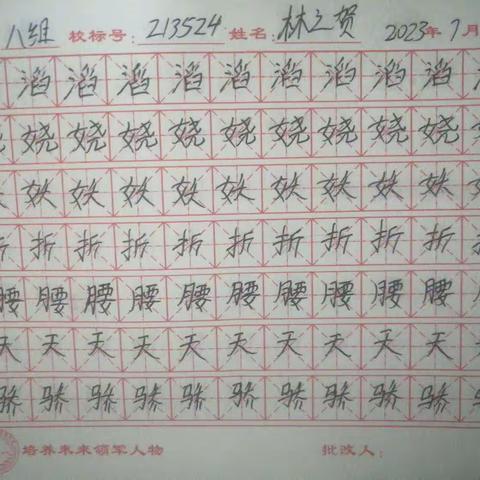 八组 校标号: 213524 姓名: 林之贺 2023年 7月
滔 滔 滔 滔 滔 滔 滔 滔 滔
娆 娆 娆 娆 娆 娆 娆 娆 娆
妖 妖 妖 妖 妖 妖 妖 妖 妖
折 折 折 折 折 折 折 折 折
腰 腰 腰 腰 腰 腰 腰 腰 腰 腰
天 天 天 天 天 天 天 天 天 天
骄 骄 骄 骄 骄 骄 骄 骄 骄 骄
培养未来领军人物 批改人: